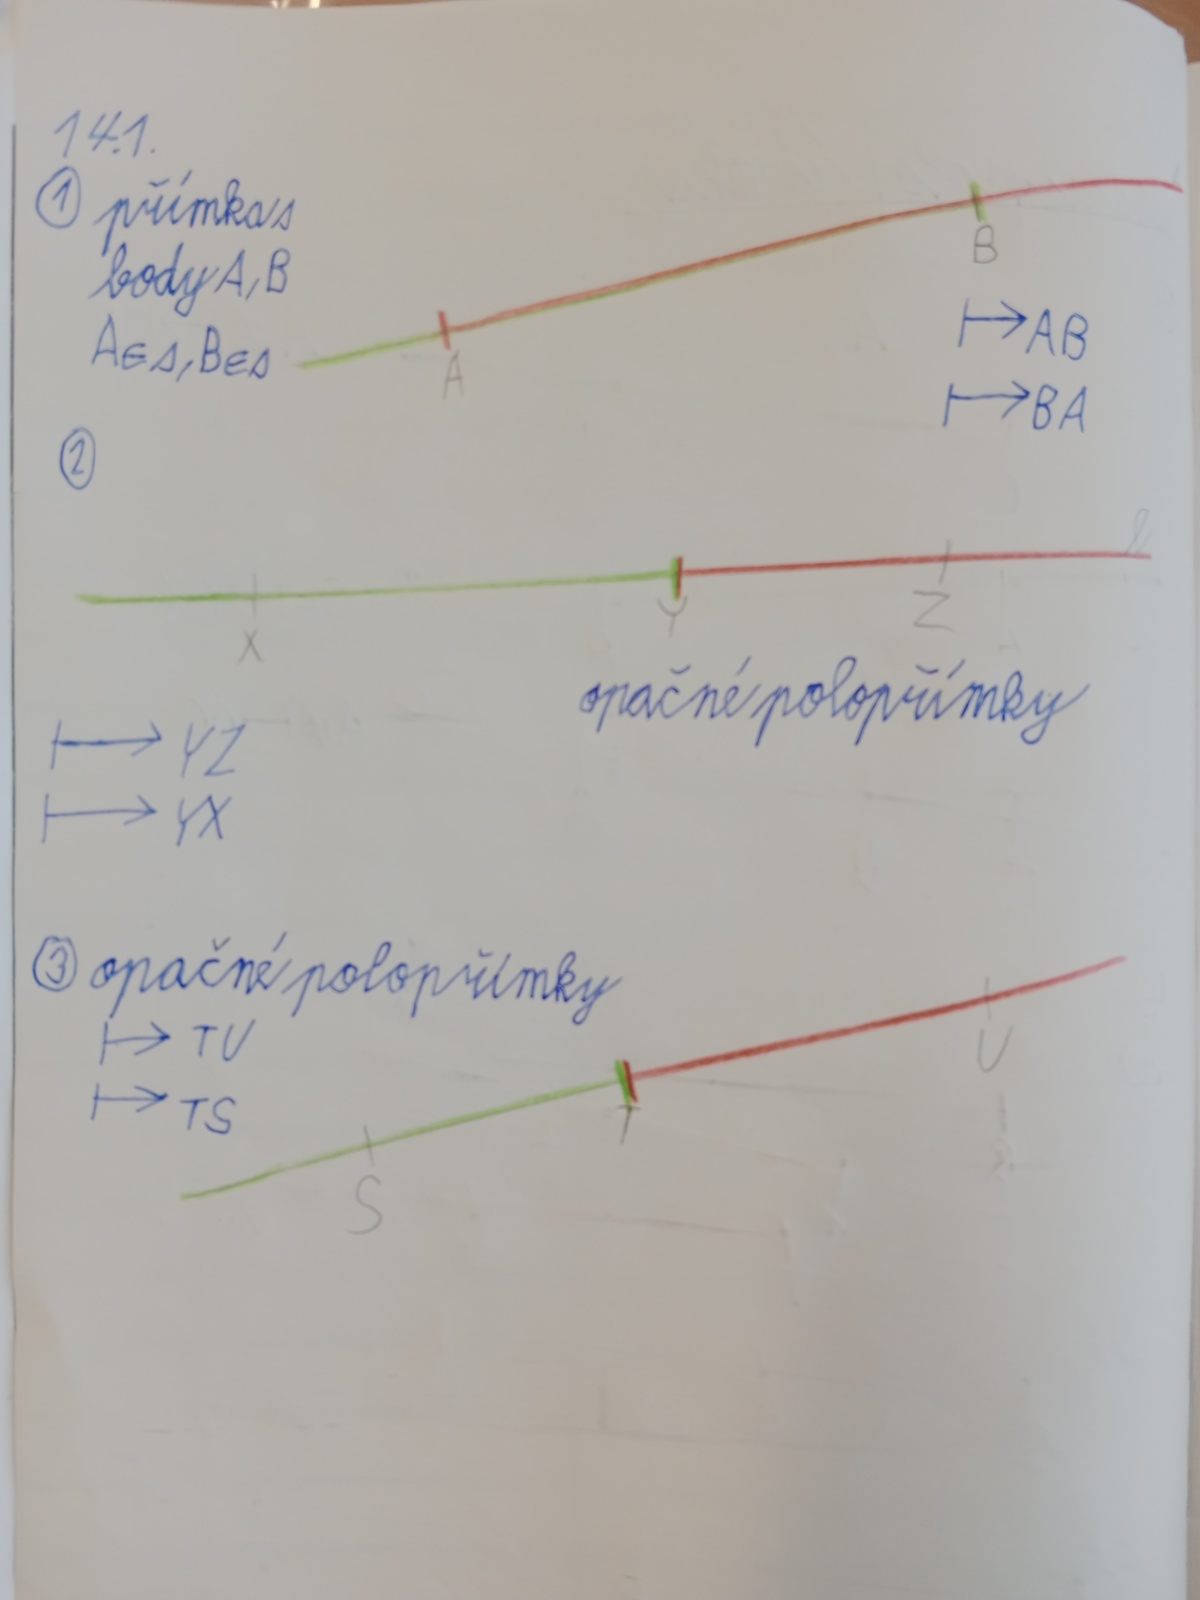 14.1.
① přímka s
body A, B
A∈s, B∈s
A
B
↦AB
↦BA
②
X
Y
Z
opačné polopřímky
↦ YZ
↦ YX
③ opačné polopřímky
↦ TU
↦ TS
S
T
U